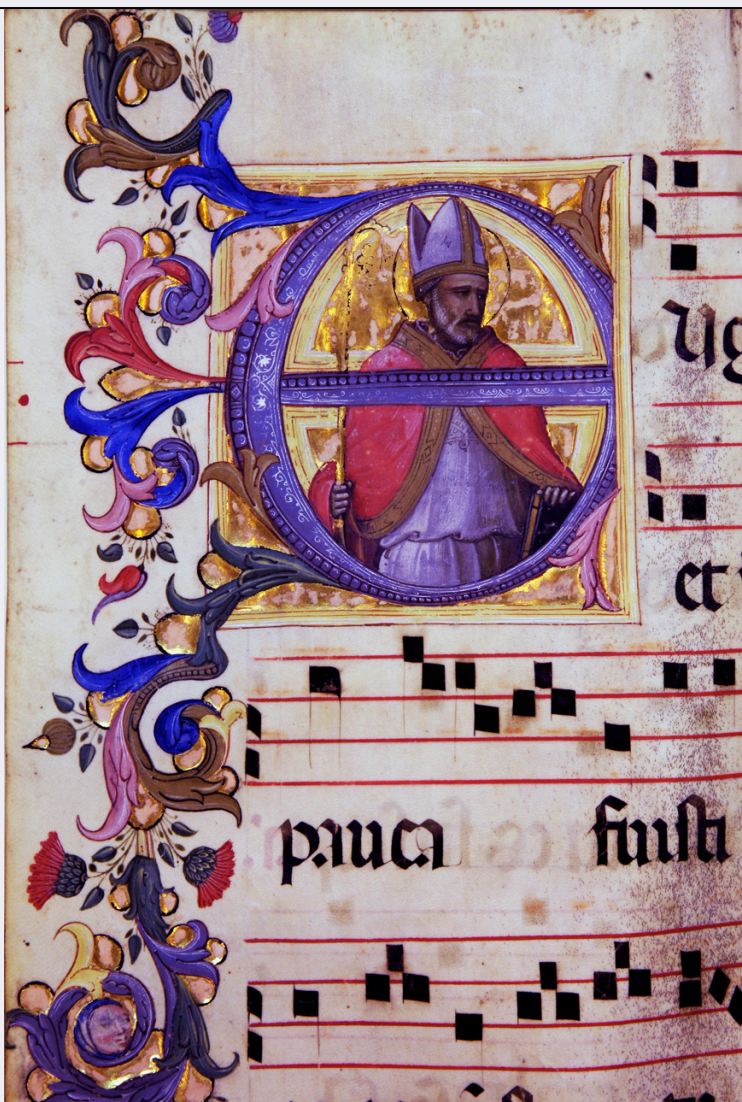 E ug
et
pauca fuisti